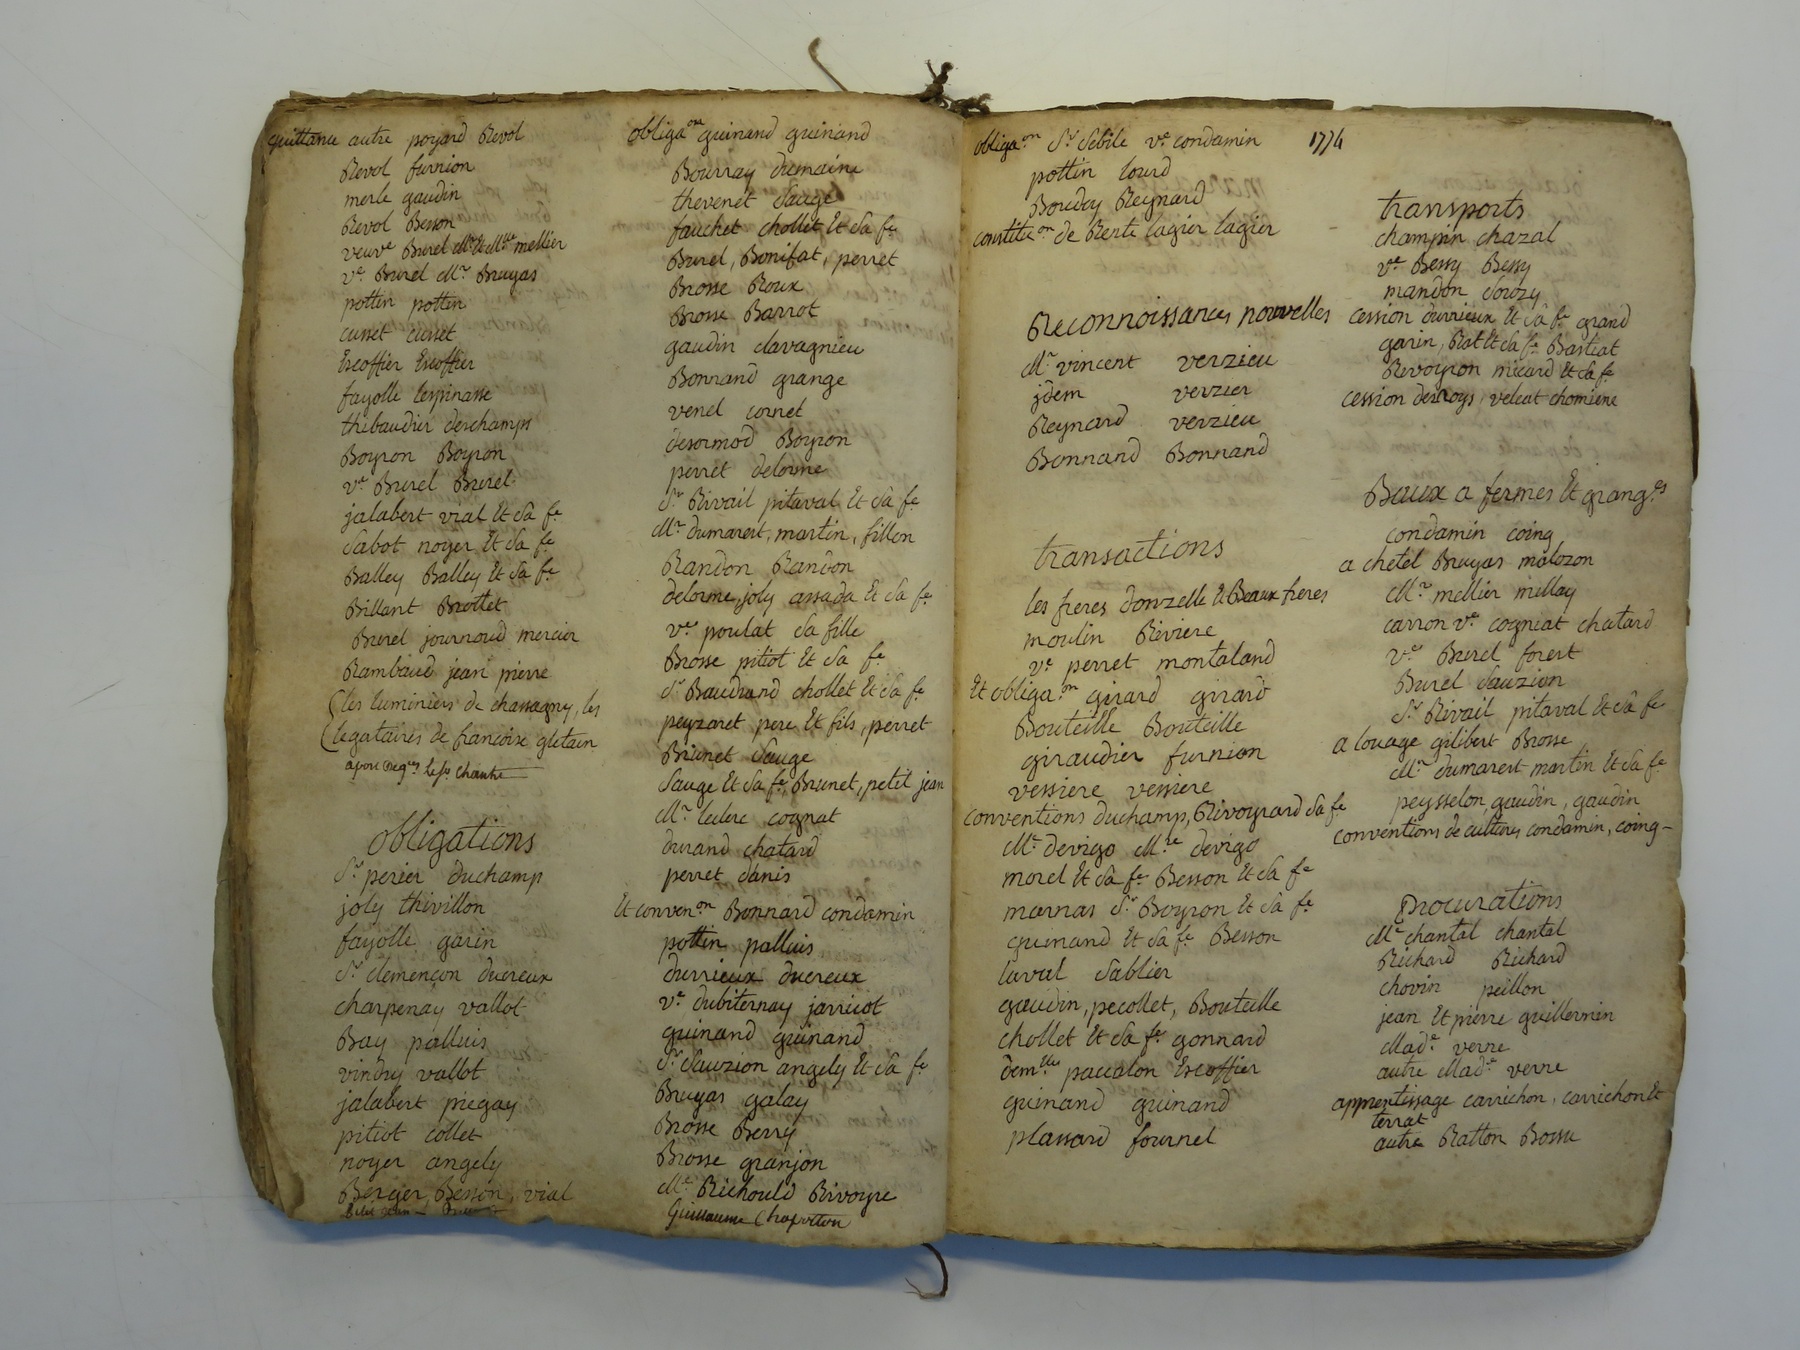 quittance autre poyard Revol
Revol furnion
merle gaudin
Revol Besson
veuve Burel Mr et Mlle mellier
ve Burel Mr Bruyas
pottin pottin
cusset cusset
Escoffier Escoffier
fayolle lespinasse
thibaudier deschamps
Boyron Boyron
ve Burel Burel
jalabert vial Et sa fe
sabot noyer Et sa fe
Balley Balley Et sa fe
Billant Brottet
Burel journoud mercier
Rambaud jean pierre
(les luminiers de chassagny, les
(legataires de francoise gletain
obligations
Sr perier duchamp
joly thivillon
fayolle garin
Sr clemençon ducreux
charpenay vallot
Bay palluis
vindry vallot
jalabert piegay
pitiot collet
noyer angely
Berger, Besson, vial
obligaon guinand guinand
Bourray dumaine
thevenet sauge
fauchet chollet Et sa fe
Burel, Bonifat, perret
Brosse Roux
Brosse Barrot
gaudin clavagnieu
Bonnand grange
venel cornet
desormod Boyron
perret delorme
Sr Rivail pitaval Et sa fe
Mr dumarest, martin, fillon
Randon Randon
delorme, joly assada Et sa fe
ve poulat sa fille
Brosse pitiot Et sa fe
Sr Baudrand chollet Et sa fe
peyzaret pere Et fils, perret
Brunet sauge
sauge Et sa fe, Brunet, petit jean
Mr leclerc cognat
durand chatard
perret danis
Et convenon Bonnard condamin
pottin palluis
durrieux ducreux
ve dubiternay jarricot
guinand guinand
Sr sauzion angely Et sa fe
Bruyas galay
Brosse Berry
Brosse granjon
Mr Richould Rivoyre
Guillaume Chapotton
obligaon Sr sebile ve condamin 1774
pottin lourd
Boudoy Reynard
constituon de Rente lagier lagier
Reconnoissances nouvelles
Mr vincent verzieu
jdem verzier
Reynard verzieu
Bonnand Bonnand
transactions
les freres donzelle Et Beaux freres
moulin Riviere
ve perret montaland
Et obligaon girard girard
Bouteille Bouteille
giraudier furnion
vessiere vessiere
conventions duchamp, Rivoyrard sa fe
Mr devigo Mlle devigo
morel Et sa fe Besson Et sa fe
marnas Sr Boyron Et sa fe
guinand Et sa fe Besson
laval sablier
gaudin, pecollet, Bouteille
chollet Et sa fe gonnard
demlle paccalon Escoffier
guinand guinand
plassard fournel
transports
champin chazal
ve Bessy Bessy
mandon souzy
cession durrieux Et sa fe grand
garin, Rat Et sa fe Bastiat
Revoyron micard Et sa fe
cession desroys velcat chomiene
Baux a fermes Et granges
condamin coing
a chetel Bruyas malozon
Mr mellier millay
carron ve cogniat chatard
ve Burel forest
Burel sauzion
Sr Rivail pitaval Et sa fe
a louage gilibert Brosse
Mr dumarest martin Et sa fe
peysselon gaudin, gaudin
conventions de cultures condamin, coing-
procurations
Mr chantal chantal
Richard Richard
chovin peillon
jean Et pierre guillermin
Made verne
autre Made verne
apprentissage carrichon, carrichon Et
terrat
autre Ratton Bossu